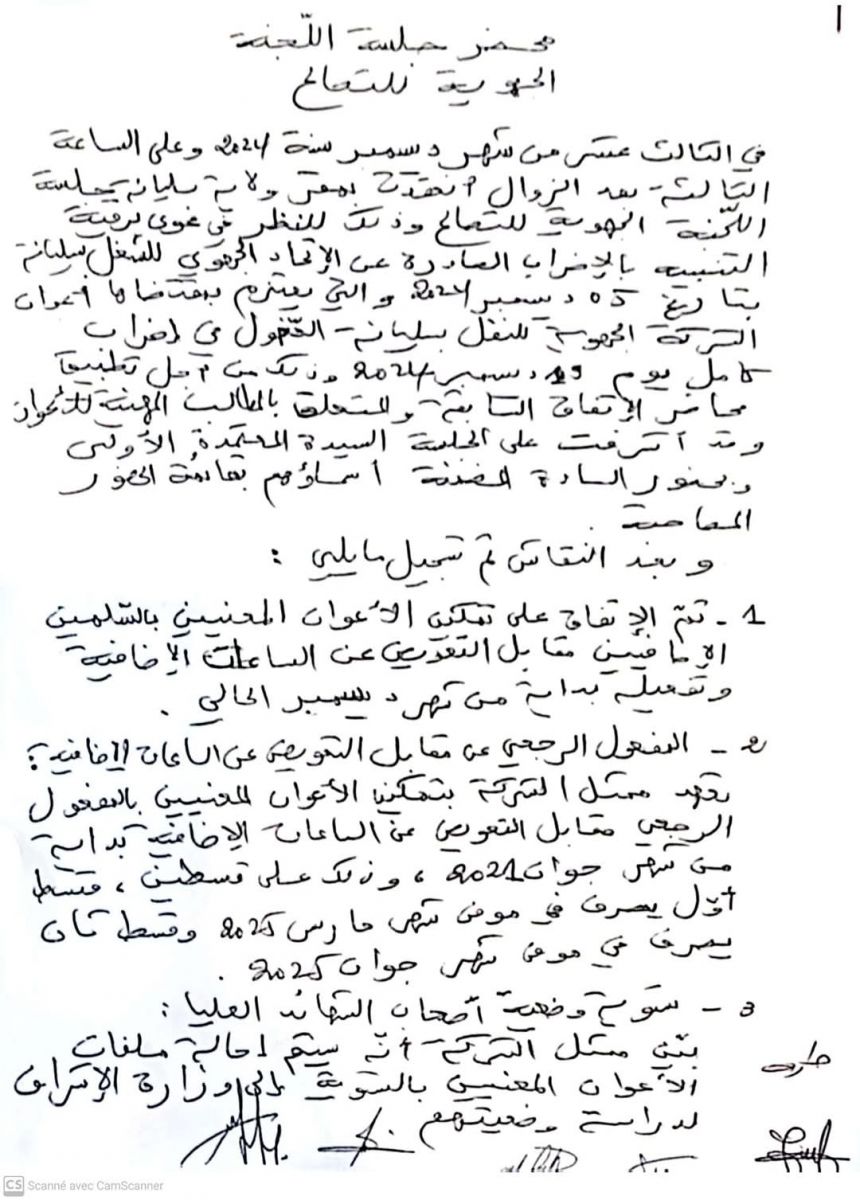 1
محضر جلسة اللّجنة
الجهوية للتصالح
في الثالث عشر من شهر ديسمبر سنة 2024 وعلى الساعة
الثالثة بعد الزوال انعقدت بمقر ولاية سليانة جلسة
اللّجنة الجهوية للتصالح وذلك للنظر في فحوى برقية
التنبيه بالإضراب الصادرة عن الإتحاد الجهوي للشغل بسليانة
بتاريخ 05 ديسمبر 2024 والتي يعتزم بمقتضاها أعوان
الشركة الجهوية للنقل بسليانة الدّخول في إضراب
كامل يوم ديسمبر 2024 وذلك من أجل تطبيق
محاضر الإتفاق السابقة والمتعلقة بالمطالب المهنية للأعوان
وقد أشرفت على الجلسة السيدة المعتمدة الأولى
وبحضور السادة المضمنة أسماؤهم بقائمة الحضور
المصاحبة.
وبعد النقاش تم تسجيل ما يلي :
1 - تمّ الإتفاق على تمكين الأعوان المعنيين بالسّلمين
الإضافيين مقابل التعويض عن الساعات الإضافية
وتفعيله بداية من شهر ديسمبر الحالي .
2 - المفعول الرجعي عن مقابل التعويض عن الساعات الإضافية :
تعهد ممثل الشركة بتمكين الأعوان المعنيين بالمفعول
الرجعي مقابل التعويض عن الساعات الإضافية بداية
من شهر جوان 2021 ، وذلك على قسطين ، قسط
أوّل يصرف في موفى شهر مارس 2025 وقسط ثان
يصرف في موفى شهر جوان 2025 .
3 - تسوية وضعية أصحاب الشهائد العليا :
بيّن ممثل الشركة أنّه سيتم إحالة ملفات
الأعوان المعنيين بالتسوية إلى وزارة الإشراف
لدراسة وضعيتهم
CS Scanné avec CamScanner